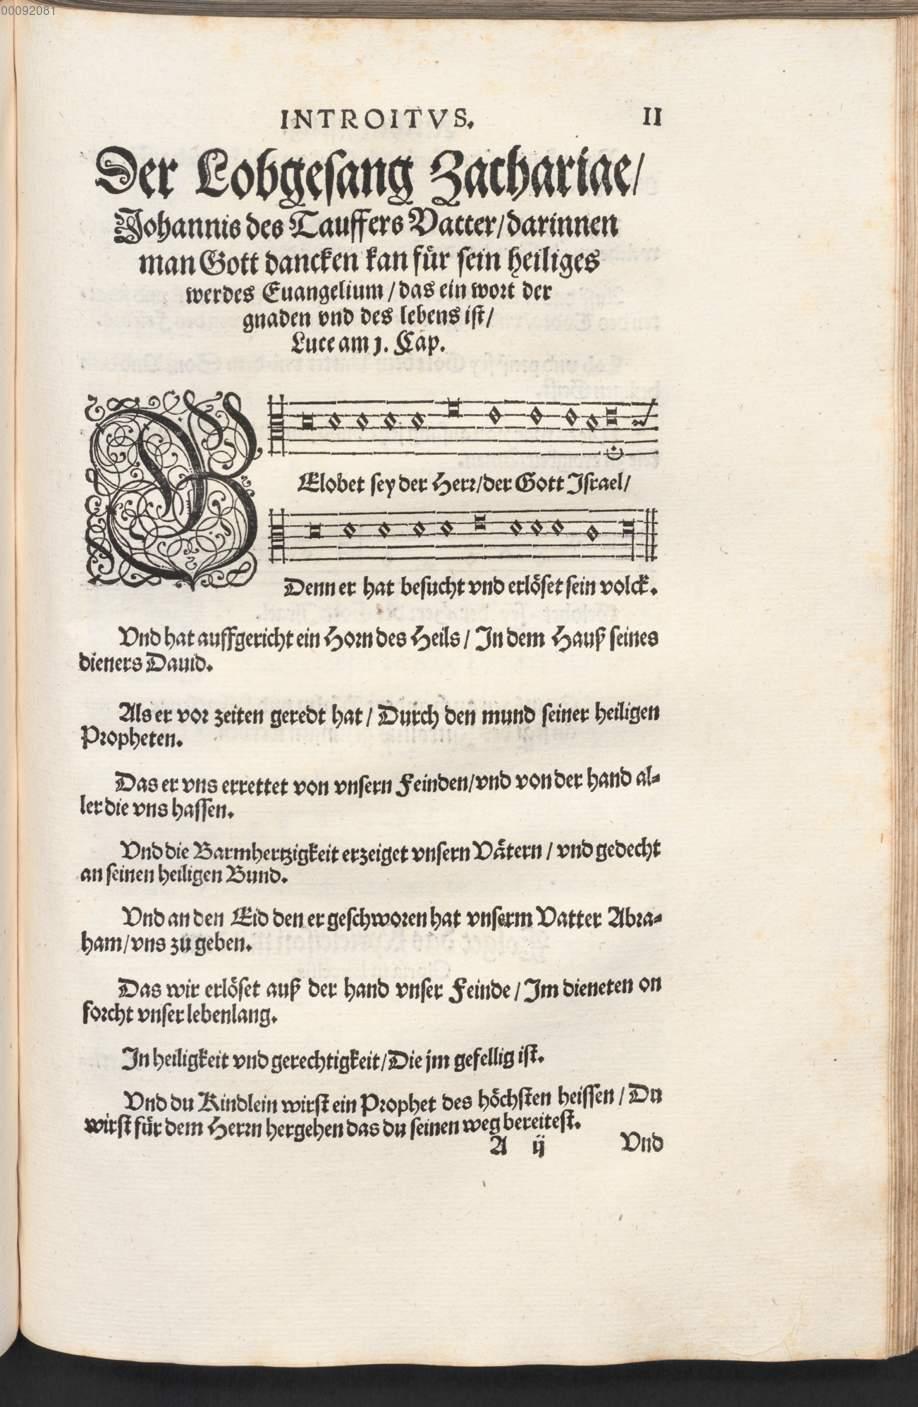 00092081
INTROITVS.
II
Der Lobgesang Zachariae/
Johannis des Tauffers Vatter/darinnen
man Gott dancken kan für sein heiliges
werdes Euangelium/das ein wort der
gnaden vnd des lebens ist/
Luce am j. Cap.
BElobet sey der Herr/der Gott Israel/
Denn er hat besucht vnd erlöset sein volck.
Vnd hat auffgericht ein Horn des Heils/In dem Hauß seines
dieners Dauid.
Als er vor zeiten geredt hat/Durch den mund seiner heiligen
Propheten.
Das er vns errettet von vnsern Feinden/vnd von der hand al-
ler die vns hassen.
Vnd die Barmhertzigkeit erzeiget vnsern Vätern/vnd gedecht
an seinen heiligen Bund.
Vnd an den Eid den er geschworen hat vnserm Vatter Abra-
ham/vns zu geben.
Das wir erlöset auß der hand vnser Feinde/Im dieneten on
forcht vnser lebenlang.
In heiligkeit vnd gerechtigkeit/Die jm gefellig ist.
Vnd du Kindlein wirst ein Prophet des höchsten heissen/Du
wirst für dem Herrn hergehen das du seinen weg bereitest.
A ij
Vnd